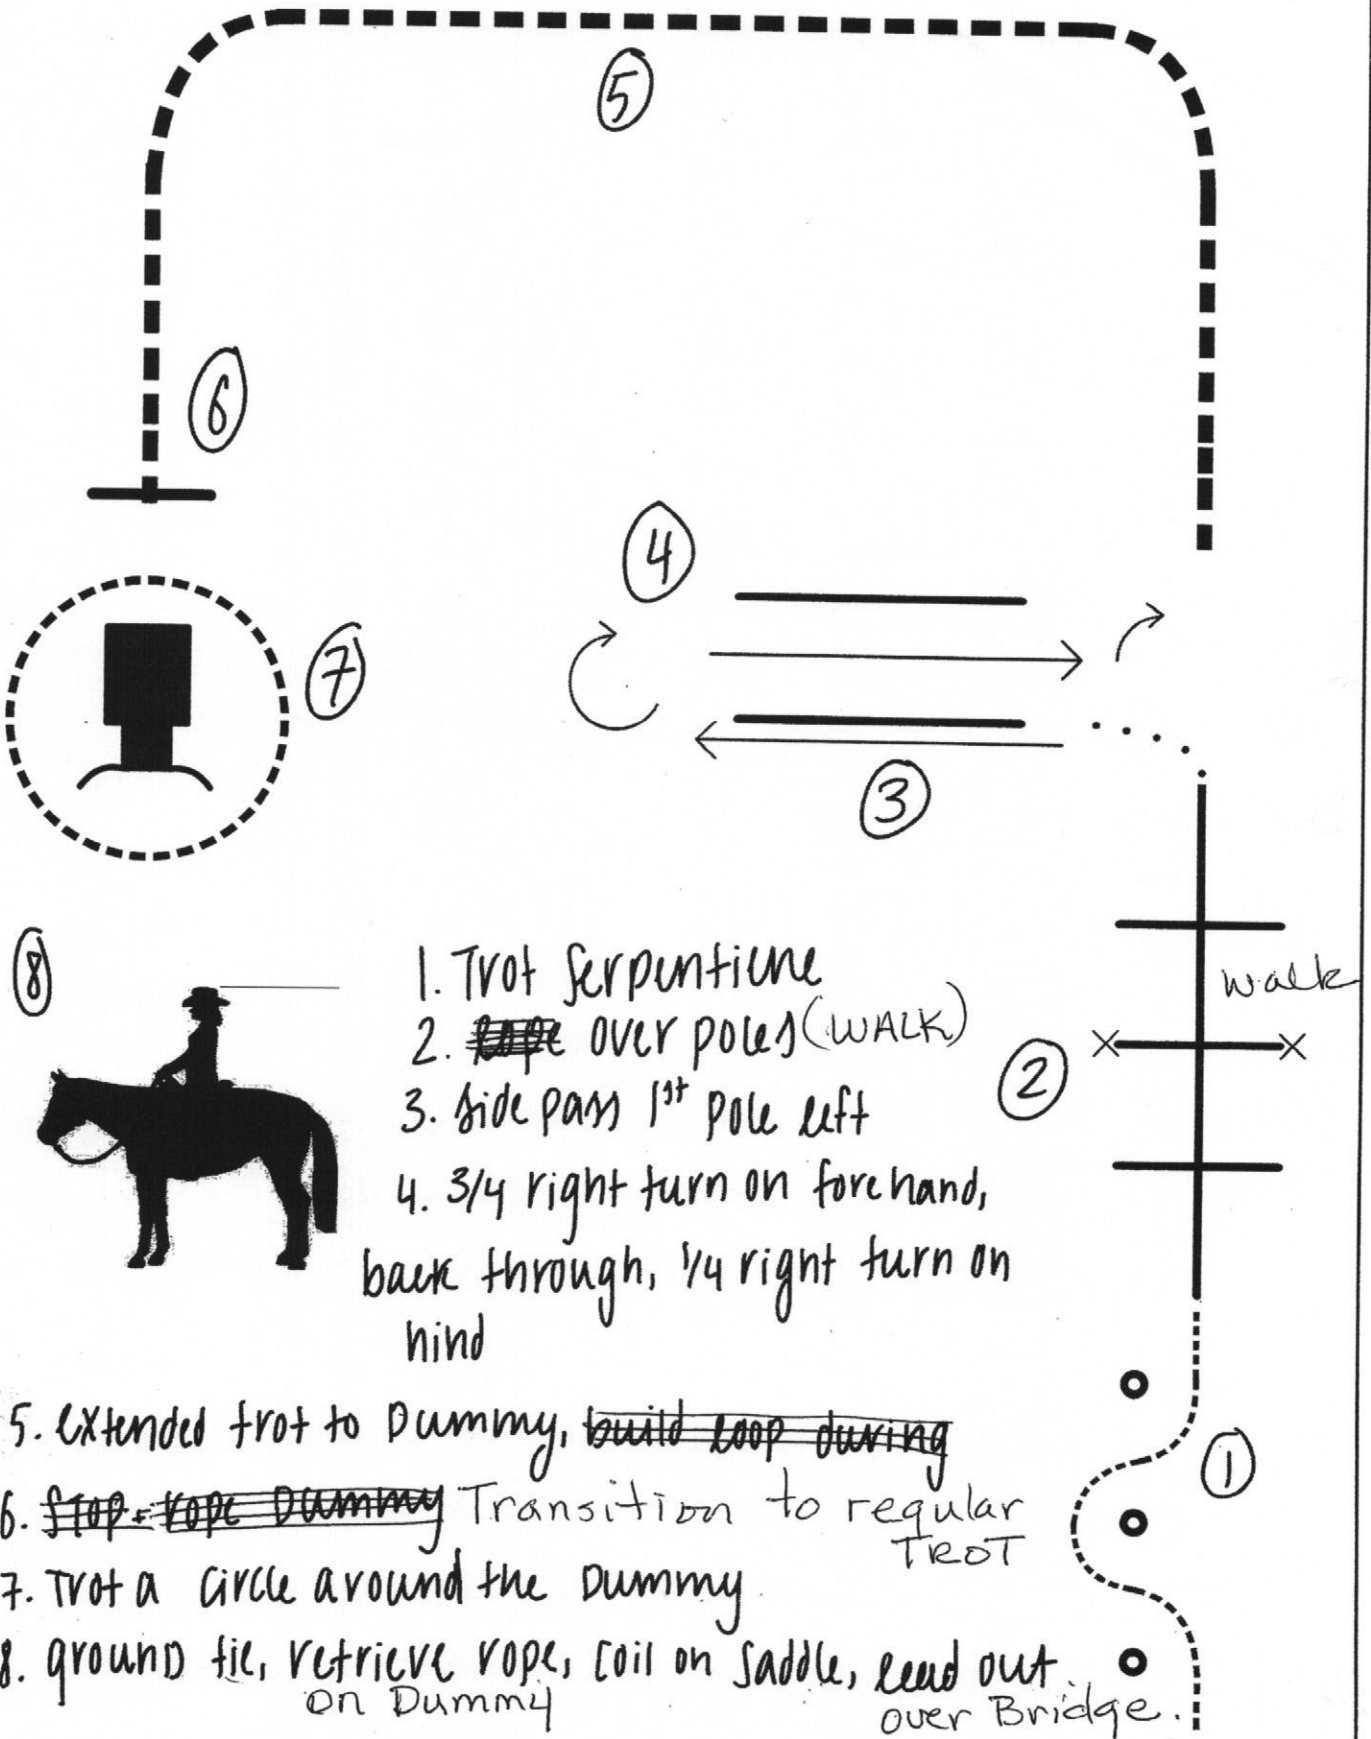 5
6
4
7
3
8
1. Trot Serpentiene
walk
2. lope over poles (WALK)
2
3. side pass 1st pole left
4. 3/4 right turn on forehand,
back through, 1/4 right turn on
hind
5. extended trot to Dummy, build loop during
1
6. Stop + rope Dummy Transition to regular
TROT
7. Trot a circle around the Dummy
8. ground tie, retrieve rope, coil on saddle, lead out.
on Dummy over Bridge.